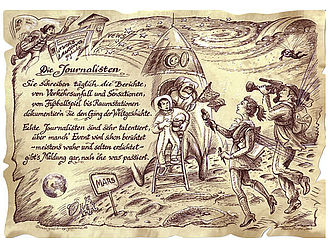 Die Journalisten
Sie schreiben täglich die Berichte,
von Verkehrsunfall und Sensationen,
von Fußballspiel bis Raumstationen
dokumentier'n Sie den Gang der Weltgeschichte.
Echte Journalisten sind sehr talentiert,
über manch' Event wird schon berichtet
- meistens wahr und selten erdichtet -
gibt's Meldung gar, noch ehe was passiert.
MARS